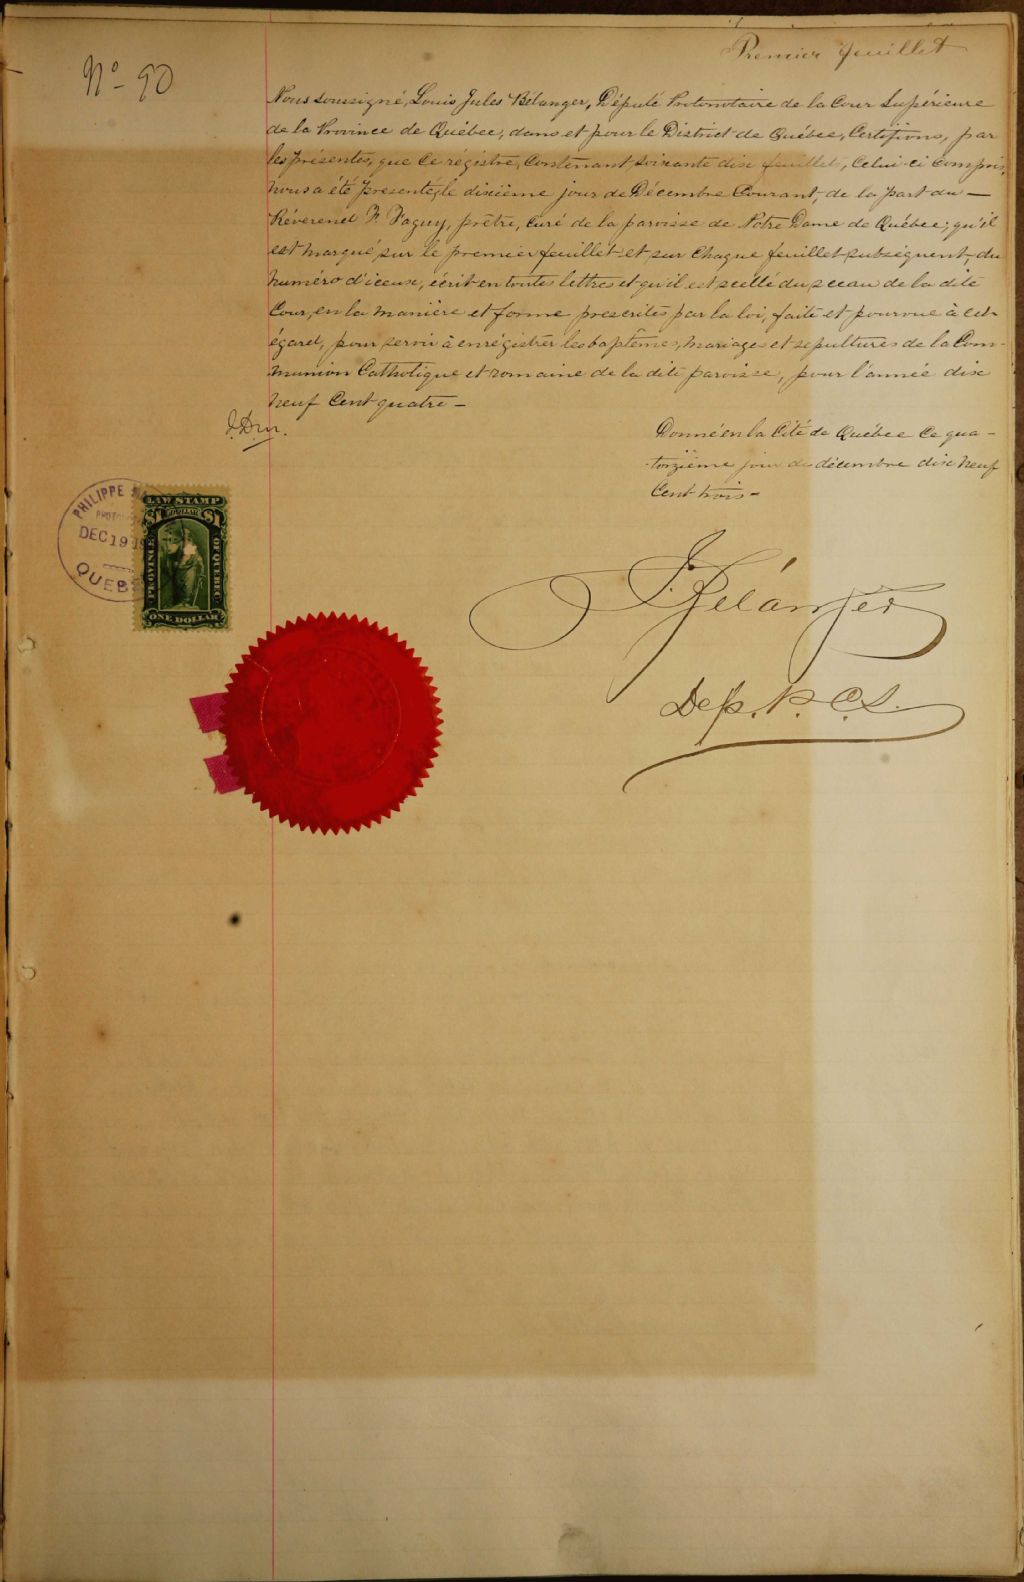 Premier feuillet
No - 90
Nous soussigné, Louis Jules Bélanger, Député Protonotaire de la Cour Supérieure
de la Province de Québec, dans et pour le District de Québec, Certifions, par
les présentes, que ce régistre, Contenant, soixante dix feuillet, Celui-ci Compris,
nous a été presenté, le dixième jour de Décembre Courant, de la part du —
Révérend F. Faguy, prêtre, curé de la paroisse de Notre Dame de Québec; qu'il
est marqué sur le premier feuillet et sur Chaque feuillet subséquent du
numéro d'iceux, écrit en toutes lettres et qu'il est scellé du sceau de la dite
Cour, en la manière et forme prescrites par la loi, faite et pourvue à cet
égard, pour servir à enrégistrer les baptêmes, mariages et sepultures de la Com-
munion Catholique et romaine de la dite paroisse, pour l'année dix
neuf Cent quatre —
Donné en la Cité de Québec Ce qua-
-torzième jour de décembre dix neuf
Cent trois —
PHILIPPE
DEC 19
QUEB
LAW STAMP
$1 DOLLAR $1
PROVINCE OF QUEBEC
ONE DOLLAR
J. Bélanger
Dep. P. C. S.